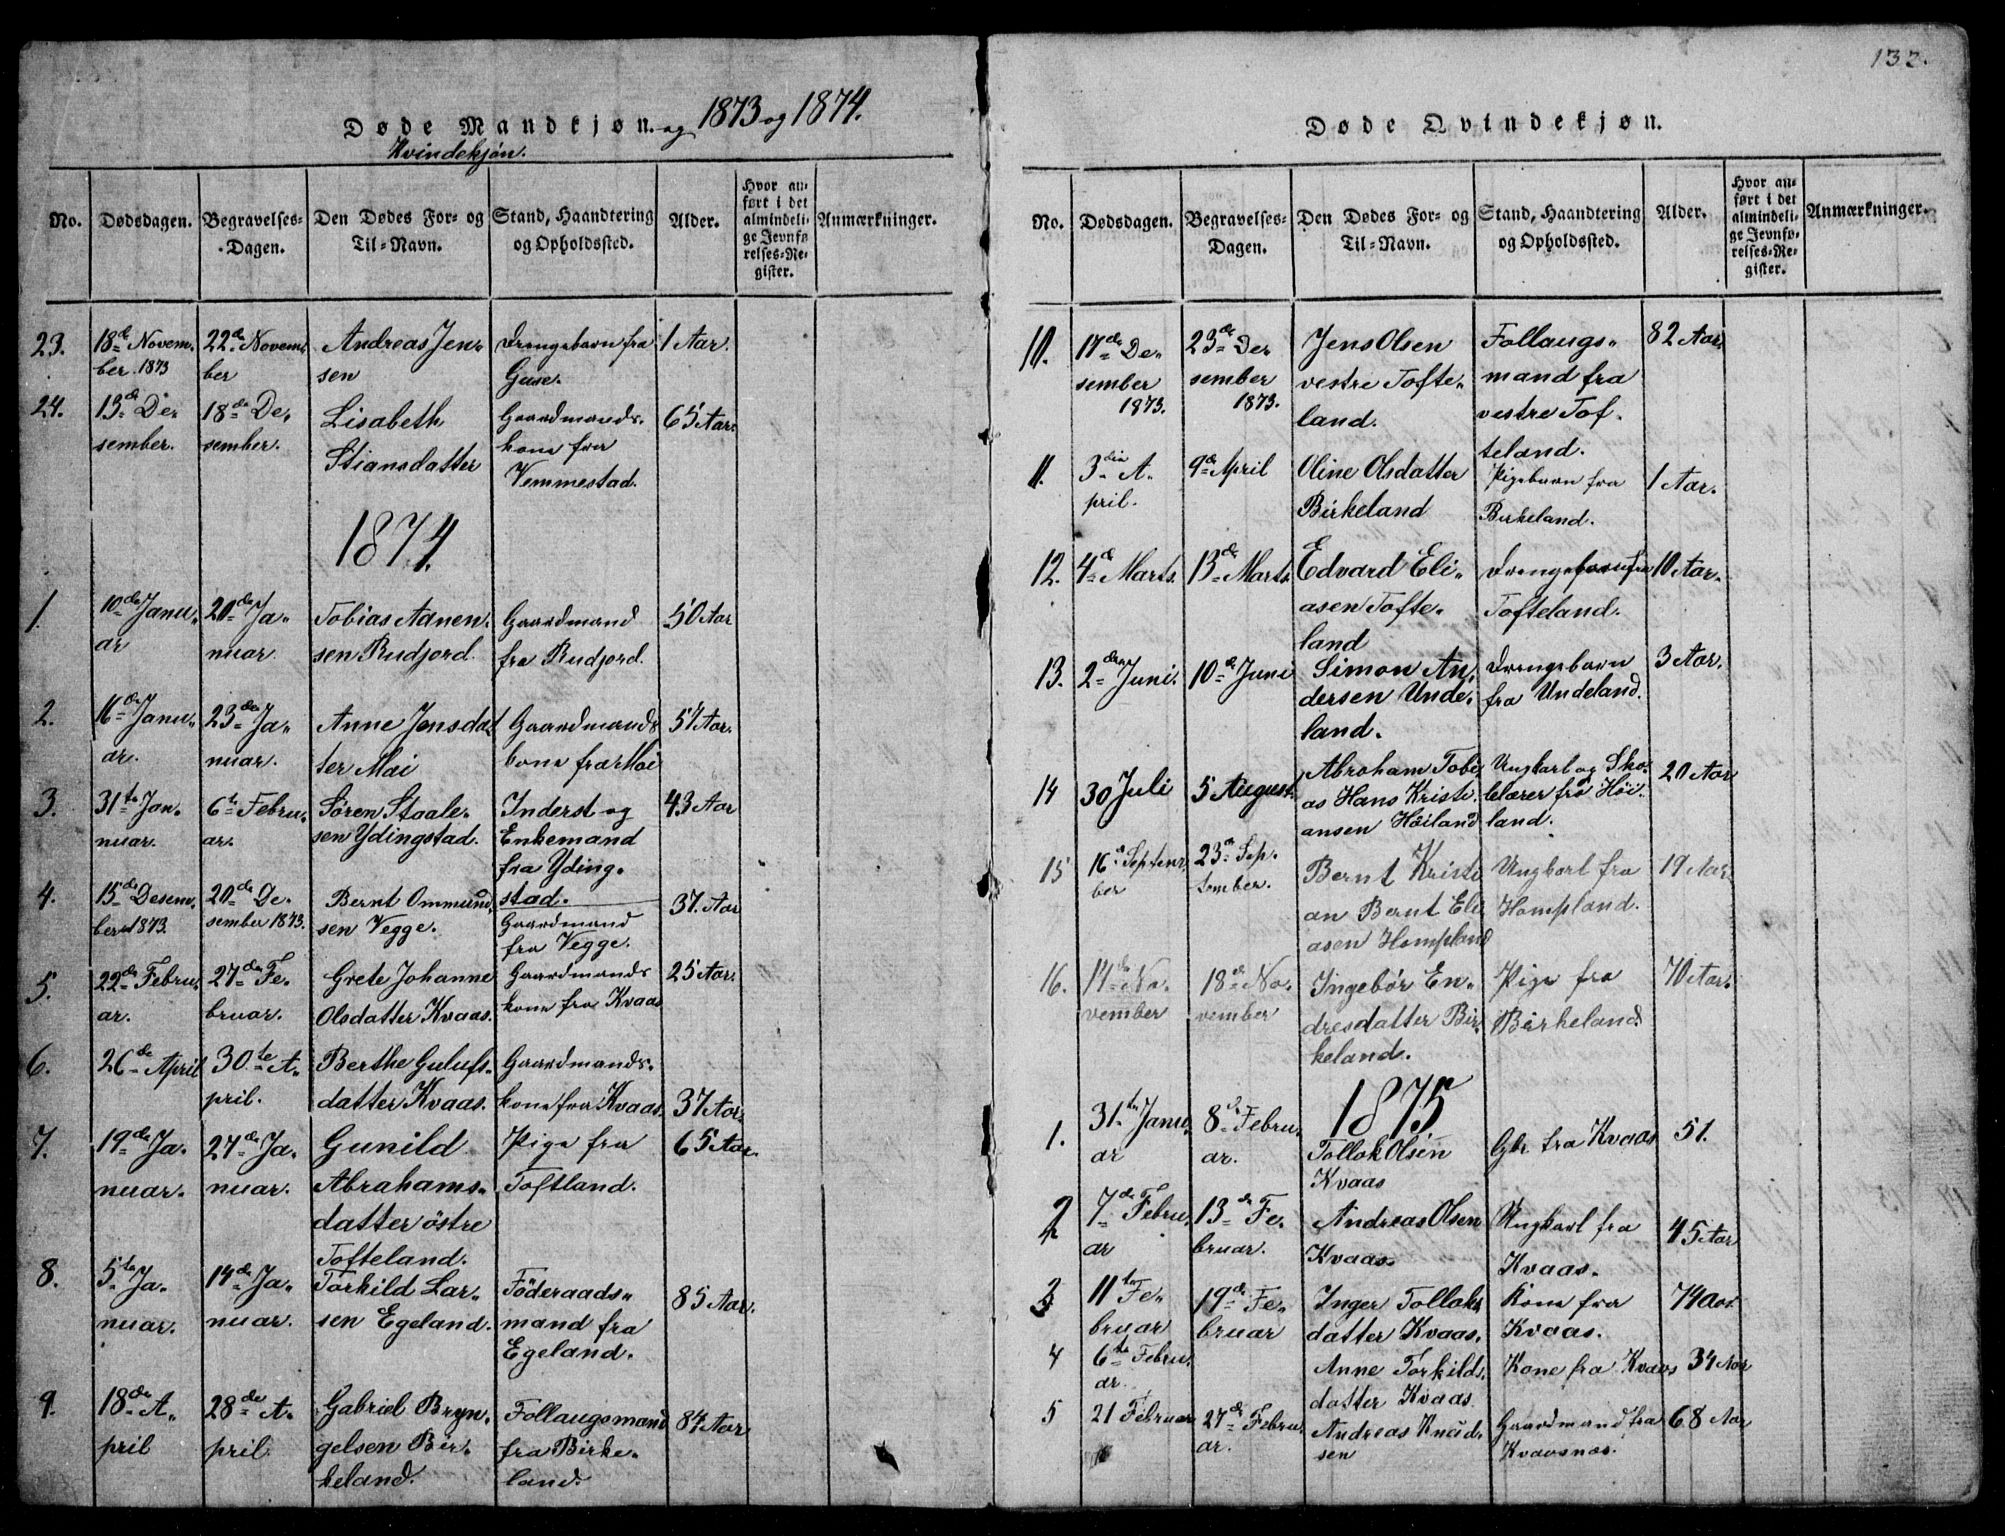 Døde Mandkjøn. og 1873 og 1874.
Kvindekjön.
No.
Dødsdagen.
Begravelses-
Dagen.
Den Dødes For= og
Til=Navn.
Stand, Haandtering
og Opholdssted.
Alder.
Hvor an=
ført i det
almindeli=
ge Jevnfø=
relses=Re=
gister.
Anmærkninger.
23.
18de Novem-
ber. 1873
22de Novem-
ber
Andreas Jen-
sen
Drengebarn fra
1 Aar.
24.
13de De-
sember.
18de De-
sember.
Lisabeth
Stiansdatter
Gaardmands-
kone fra
Vemmestad.
65 Aar.
1874.
1.
10de Janu-
ar
20de Ja-
nuar.
Tobias Aanen-
sen Rudjord.
Gaardmand
fra Rudjord.
50 Aar
2.
16de Janu-
ar.
23de Ja-
nuar.
Anne Jensdat
ter Moi
Gaardmands
kone fra Moi
57 Aar.
3.
31te Jan-
nuar.
6te Febru-
ar.
Søren Staale-
sen Ydingstad.
Inderst og
Enkemand
fra Yding-
stad.
43 Aar
4.
15de Desem-
ber 1873.
20de De-
sember 1873.
Bernt Ommund-
sen Vegge.
Gaardmand
fra Vegge.
37. Aar
5.
22de Febru-
ar.
27de Fe-
bruar.
Grete Johanne
Olsdatter Kvaas.
Gaardmands
kone fra Kvaas
25 Aar.
6.
26de April
30te A-
pril.
Berthe Gulufs-
datter Kvaas.
Gaardmands-
kone fra Kvaas.
37 Aar.
7.
19de Ja-
nuar.
27de Ja-
nuar.
Gunild
Abrahams-
datter östre
Tofteland.
Pige fra
Toftland.
65 Aar.
8.
5te Ja-
nuar.
14de Ja-
nuar.
Torkild Lar-
sen Egeland.
Föderaads-
mand fra
Egeland.
85 Aar.
9.
18de A-
pril
28de A-
pril
Gabriel Bryn-
gelsen Bir-
keland.
Follaugsmand
fra Birke-
land.
84 Aar
133.
Døde Qvindekjøn.
No.
Dødsdagen.
Begravelses=
Dagen.
Den Dødes For= og
Til=Navn.
Stand, Haandtering
og Opholdssted.
Alder.
Hvor an=
ført i det
almindeli=
ge Jevnfø=
relses=Re=
gister.
Anmærkninger.
10.
17de De-
sember
1873.
23de De-
sember
1873.
Jens Olsen
vestre Tofte-
land.
Follaugs-
mand fra
vestre Tof-
teland.
82 Aar.
11.
3die A-
pril.
9de April
Oline Olsdatter
Birkeland
Pigebarn fra
Birkeland.
1 Aar.
12.
4de Marts.
13de Marts.
Edvard Eli-
asen Tofte-
land
Drengebarn fra
Tofteland.
10 Aar.
13.
2den Juni.
10de Juni
Simon An-
dersen Unde-
land.
Drengebarn
fra Undeland.
3 Aar.
14
30 Juli
5 August.
Abraham Tobi-
as Hans Kristi-
ansen Höiland
Ungkarl og Sko-
lelærer fra Höi-
land.
20 Aar
15
16de Septem-
ber
23de Sep-
tember.
Bernt Kristi
an Bernt Eli-
asen Hompland
Ungkarl fra
Hompland.
19 Aar.
16.
14de No-
vember
18de No-
vember
Ingebör En-
dresdatter Bir-
keland.
Pige fra
Birkeland.
70 Aar.
1875
1.
31te Janu-
ar
8de Febru-
ar.
Tollok Olsen
Kvaas
Gbr. fra Kvaas
51.
2
7de Febru-
ar
13de Fe-
bruar.
Andreas Olsen
Kvaas.
Ungkarl fra
Kvaas.
45 Aar
3
11te Fe-
bruar
19de Fe-
bruar
Inger Tolloks
datter Kvaas.
Kone fra
Kvaas.
74 Aar.
4
6te Febru-
ar.
Anne Torkilds-
datter Kvaas.
Kone fra Kvaas
34 Aar
5
21 Februar
27de Febru-
ar.
Andreas Knud-
sen
Gaardmand fra
Kvaasnæs.
68 Aar